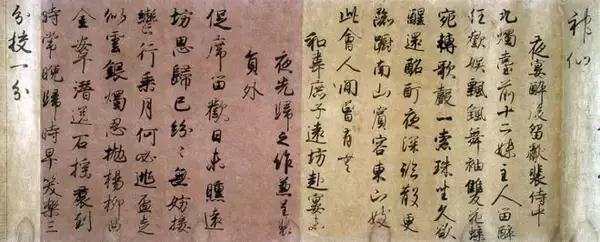 神仙
夜宴醉後留獻裴侍中
九燭臺前十二姝主人留醉
任歡娛飄飄舞袖雙飛蝶
宛轉歌聲一索珠坐久欲
醒還酩酊夜深散更
踟躕南山賓客東山妓
此會人間曾有無
和韋庶子遠坊赴宴未
夜先歸之作兼呈裴
員外
促席留歡日未曛遠
坊思歸已紛紛無妨按
轡行乘月何必逃盃走
似雲銀燭忍拋楊柳曲
金鞍潛送石榴裙到
時常晚歸時早笑樂三
分校一分